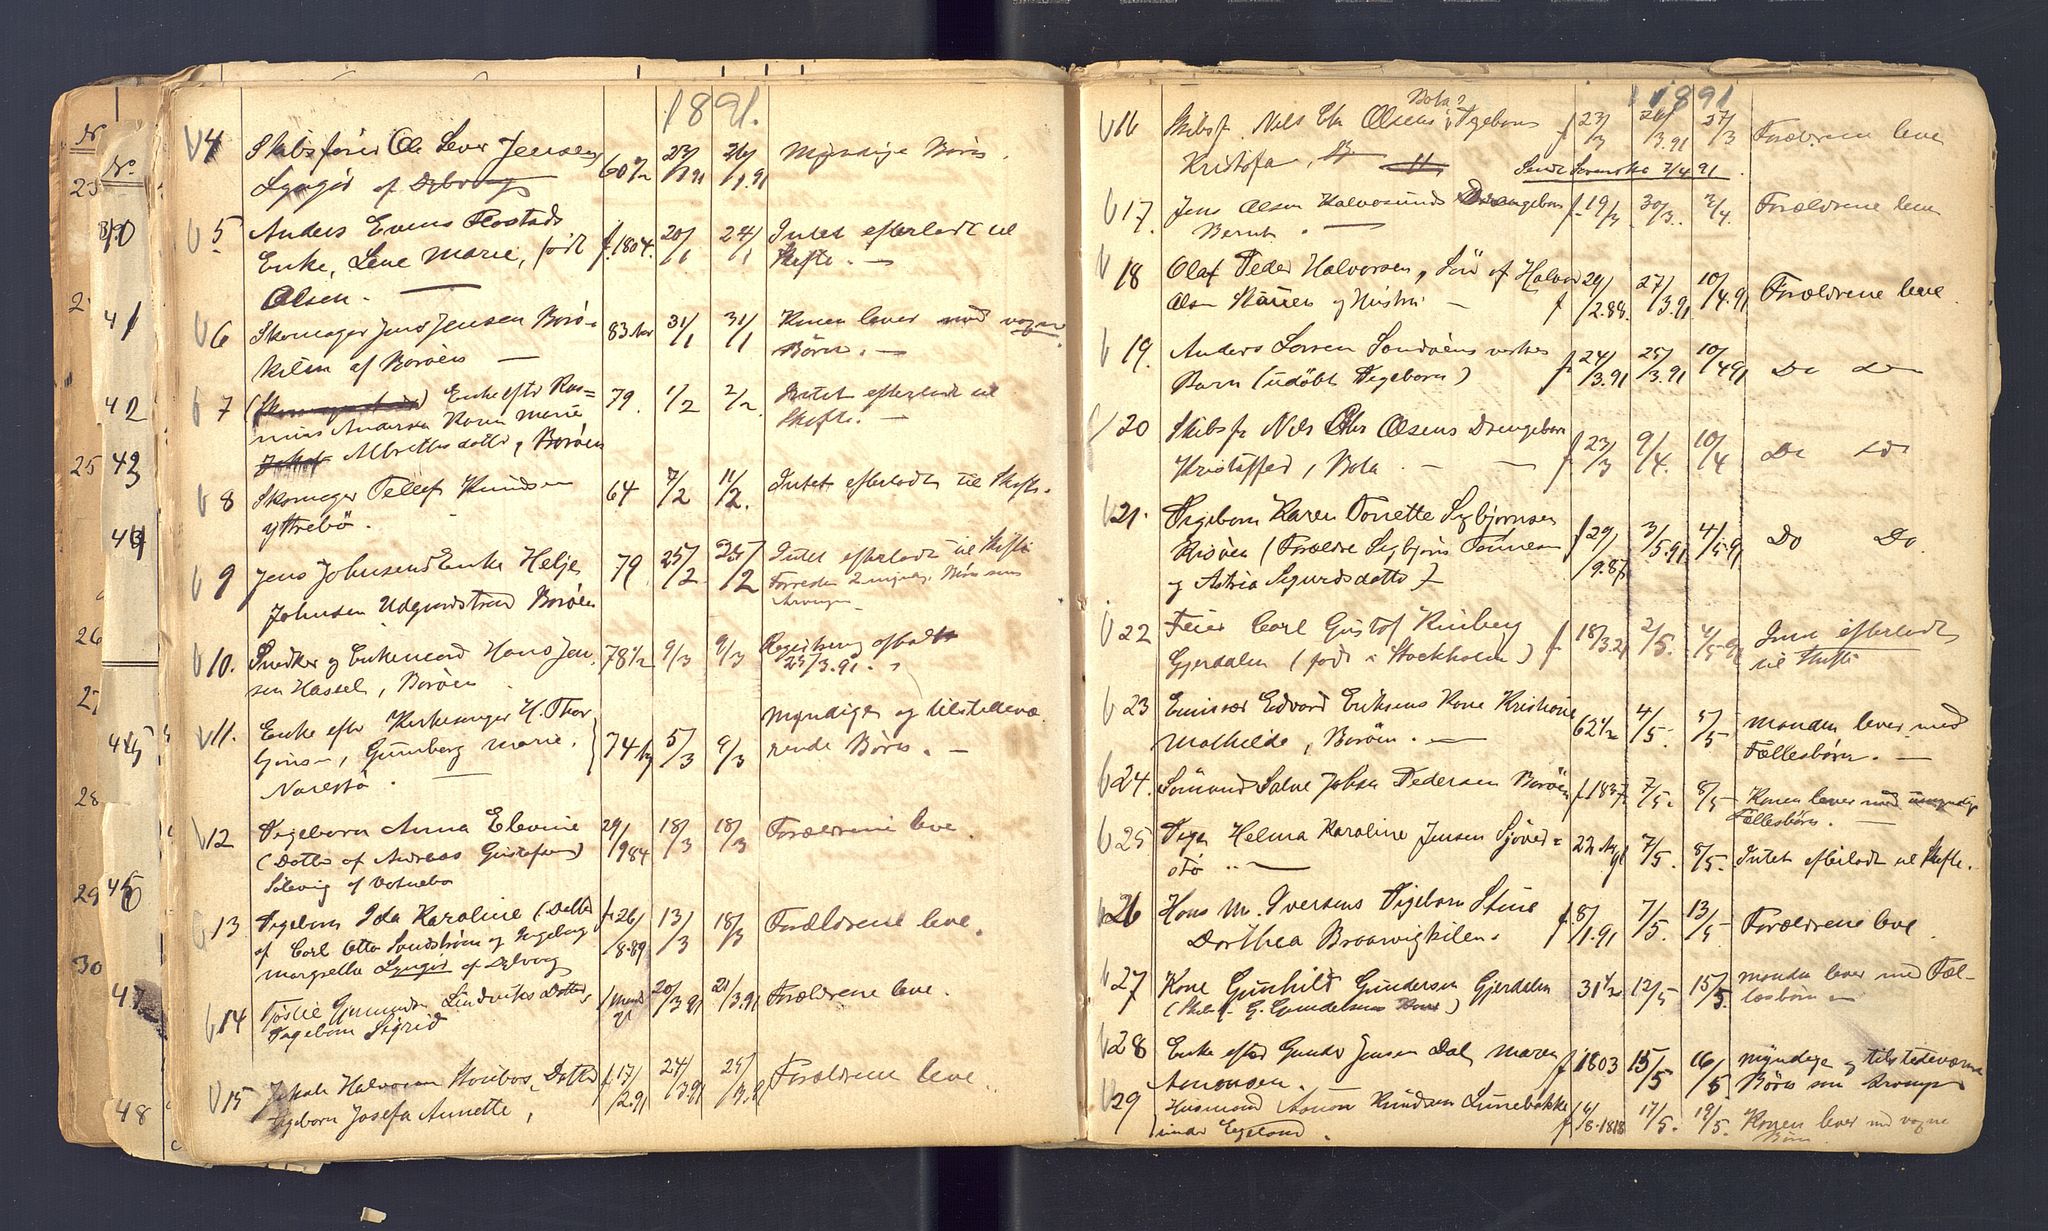 1891.
4 Skibsfører Ole Jensen 60½ 23/1 91 26/1.91 Myndige Børn.
Lyngør af Dybvaag
5. Anders Evens Rostads f. 1804. 20/1 24/1 Intet efterladt til
Enke, Lene Marie, født Skifte. —
Olsen. —
6 Skomager Jens Jensen Borø= 83 Aar 31/1 31/1 Konen lever med voxne
kilen af Borøen — Børn. —
7 Enke efter Ras= 79. 1/2 2/2. Intet efterladt til
mus Andersen Karen Marie Skifte. —
Albretsdatter, Borøen
8 Skomager Tellef Knudsen 64 7/2 11/2. Intet efterladt til Skifte.
Yttrebø.
9 Jens Johnsens Enke Helje 79. 25/2. 25/2 Intet efterladt til Skifte
Johnsen Udgardstrand Borøen Forresten 2 myndige Børn som
Arvinger
10. Snedker og Enkemand Hans Jen 78½ 9/3 9/3 Registrering afholdt
sen Hassel, Borøen 25/3.91.
11. Enke efter Kirkesanger H. Thor 74 5/3 9/3 Myndige og tilstedevæ
, Gunnborg Marie, rende Børn. —
Narestø.
12 Pigebarn Anna Elevine 29/9 84 18/3 18/3 Forældrene leve.
(Datter af Andreas Gustafsen)
13 Pigebarn Ida Karoline (Datter f. 26/8.89 13/3 18/3 Forældrene leve.
af Carl Otto Sundstrøm og Ingeborg
Margrethe Lyngør af Dybvaag
14 Datter, 20/3 91 21/3.91 Forældrene leve.
Pigebarn Sigrid
15 Halvorsen Datter f. 17/2.91 24/3.91 25/3.91 Forældrene leve.
Pigebarn Josefa Annette,
1891
Bota
16 Skibsf. Nils Olsens Pigebarn f 23/3 26/3.91 27/3 Forældrene leve
Kristofa,
Sendt 2/4 91
17. Jens Olsen Halvorsunds Drengebarn f. 19/3 30/3. 2/4. Forældrene leve
Bernt. —
18 Olaf Peder Halvorsen, Søn af Halvor f 29/2.88. 27/3.91 10/4.91 Forældrene leve.
Olsen og Hustru —
19. Anders Sørensen f. 24/3.91 25/3.91 10/4 91 Do Do
Barn (udøbt Pigebarn)
20 Skibsf. Nils Olsens Drengebarn f 23/3 9/4. 10/4 Do Do
Kristoffer, Bota. —
21. Pigebarn Karen Tonette Sigbjørnsen f 29/9.87 3/5.91 4/5.91 Do Do.
Risøen (Forældre Sigbjørn Tønnesen
og Astrid Sigurdsdatter)
22 Feier Carl Gustof f 18/3.21 2/5. 4/5.91 Intet efterladt
Gjerdalen (født i Stockholm) til Skifte
23 Emissær Edvard Eriksens Kone Kristiane 62½ 4/5. 5/5 Manden lever med
Mathilde, Borøen. — Fællesbørn. —
24. Sømand Salve Johan Pedersen Borøen f 1837. 7/5. 8/5 Konen lever med
Fællesbørn. —
25 Pige Helma Karoline Jensen Sjøved= 22 Aar 7/5. 8/5. Intet efterladt til Skifte.
stø —
26 Hans M. Iversens Pigebarn Stine f. 8/1.91 7/5. 13/5 Forældrene leve
Dorthea Braarvigkilen.
27 Kone Gunhild Gundersen Gjerdalen 31½ 12/5 15/5. Manden lever med Fæl-
(Skibsf. G. Gundersens Kone) lesbørn —
28 Enke efter Gunder Jensen Dal, Maren f 1803 15/5 16/5 Myndige og tilstedeværende
Aanonsen. Børn som Arvinger
29 Husmand Aanon Knudsen f 6/8.1818 17/5. 19/5. Konen lever med voxne
under Egeland. Børn